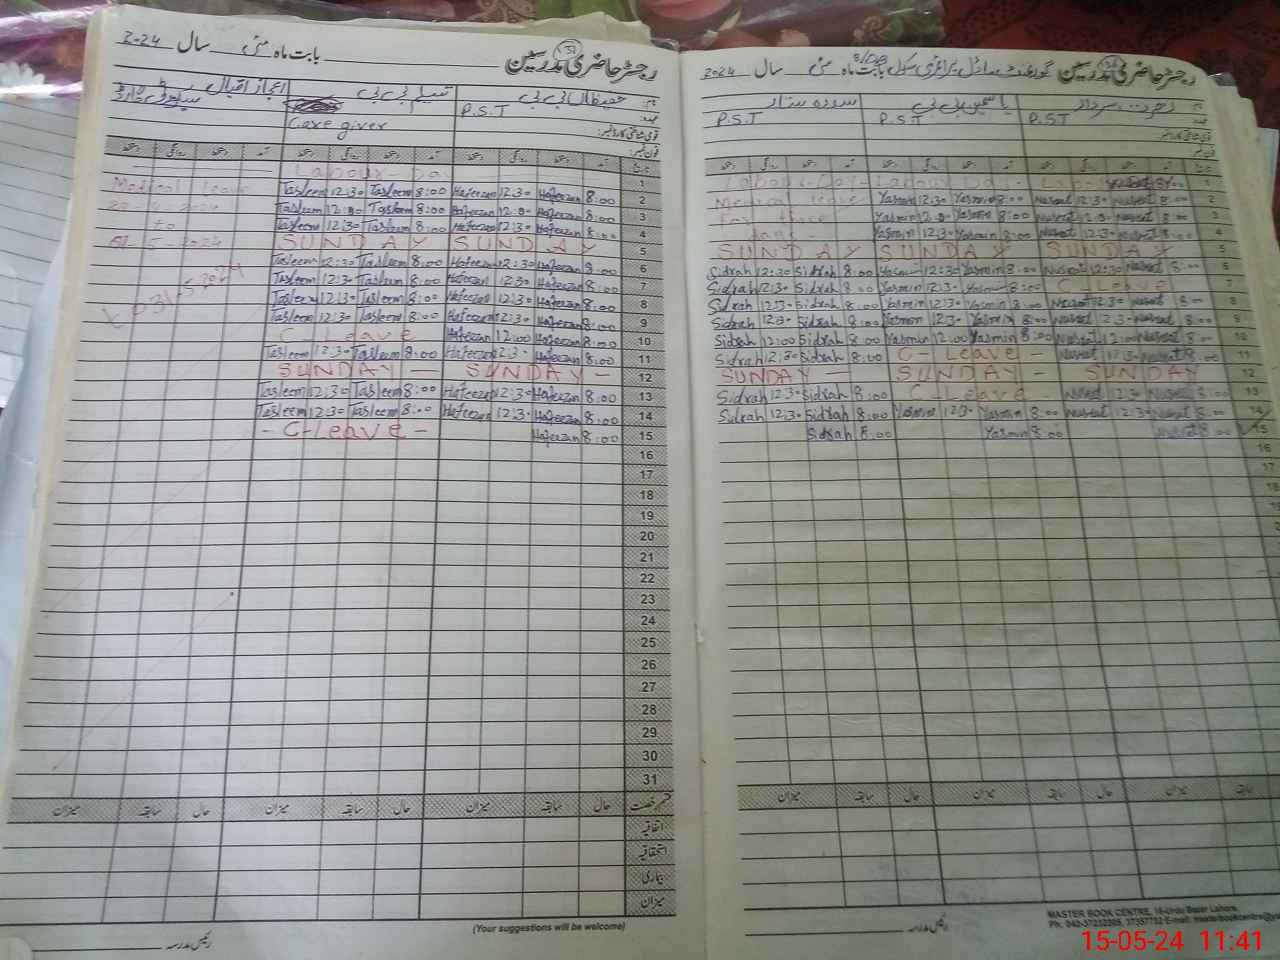 رجسٹر حاضری مدرسین گورنمنٹ ماڈل پرائمری سکول بابت ماہ مئی سال 2024
یاسمین بی بی سدرہ ستار
P.S.T P.S.T P.S.T
قومی شناختی کارڈ نمبر:
فون نمبر:
1 Labour Day - Labour Day -
2 Nusrat 8:00 Nusrat 12:30 Yasmin 8:00 Yasmin 12:30 Medical leave
3 Nusrat 8:00 Nusrat 12:30 Yasmin 8:00 Yasmin 12:30
4 Nusrat 8:00 Nusrat 12:30 Yasmin 8:00 Yasmin 12:30
5 SUNDAY SUNDAY SUNDAY
6 Nusrat 8:00 Nusrat 12:30 Yasmin 8:00 Yasmin 12:30 Sidrah 8:00 Sidrah 12:30
7 C-Leave Yasmin 8:00 Yasmin 12:30 Sidrah 8:00 Sidrah 12:30
8 Nusrat 8:00 Nusrat 12:30 Yasmin 8:00 Yasmin 12:30 Sidrah 8:00 Sidrah 12:30
9 Nusrat 8:00 Nusrat 12:30 Yasmin 8:00 Yasmin 12:30 Sidrah 8:00 Sidrah 12:30
10 Nusrat 8:00 Nusrat 12:00 Yasmin 8:00 Yasmin 12:00 Sidrah 8:00 Sidrah 12:00
11 Nusrat 8:00 Nusrat 12:30 C-Leave - Sidrah 8:00 Sidrah 12:30
12 SUNDAY SUNDAY - SUNDAY -
13 Nusrat 8:00 Nusrat 12:30 C-Leave Sidrah 8:00 Sidrah 12:30
14 Nusrat 8:00 Nusrat 12:30 Yasmin 8:00 Yasmin 12:30 Sidrah 8:00 Sidrah 12:30
15 Nusrat 8:00 Yasmin 8:00 Sidrah 8:00
16
17
18
میزان سابقہ حال میزان سابقہ حال میزان سابقہ
رئیس مدرسہ
MASTER BOOK CENTRE, 16-Urdu Bazar Lahore.
رجسٹر حاضری مدرسین بابت ماہ مئی سال 2-24
31
تسلیم بی بی اعجاز اقبال
P.S.T Care giver سیکورٹی گارڈ
قومی شناختی کارڈ نمبر:
فون نمبر:
تاریخ آمد دستخط روانگی دستخط آمد دستخط روانگی دستخط آمد دستخط روانگی دستخط
1 Labour-Day
2 Hafeezan 8:00 Hafeezan 12:30 Tasleem 8:00 Tasleem 12:30 Medical leave
3 Hafeezan 8:00 Hafeezan 12:30 Tasleem 8:00 Tasleem 12:30
4 Hafeezan 8:00 Hafeezan 12:30 Tasleem 8:00 Tasleem 12:30 to
5 SUNDAY SUNDAY
6 Hafeezan 8:00 Hafeezan 12:30 Tasleem 8:00 Tasleem 12:30
7 Hafeezan 8:00 Hafeezan 12:30 Tasleem 8:00 Tasleem 12:30
8 Hafeezan 8:00 Hafeezan 12:30 Tasleem 8:00 Tasleem 12:30
9 Hafeezan 8:00 Hafeezan 12:30 Tasleem 8:00 Tasleem 12:30
10 Hafeezan 8:00 Hafeezan 12:00 C-Leave
11 Hafeezan 8:00 Hafeezan 12:30 Tasleem 8:00 Tasleem 12:30
12 SUNDAY - SUNDAY -
13 Hafeezan 8:00 Hafeezan 12:30 Tasleem 8:00 Tasleem 12:30
14 Hafeezan 8:00 Hafeezan 12:30 Tasleem 8:00 Tasleem 12:30
15 Hafeezan 8:00 - C-Leave -
16
17
18
19
20
21
22
23
24
25
26
27
28
29
30
31
قسم رخصت حال سابقہ میزان حال سابقہ میزان حال سابقہ میزان
اتفاقیہ
استحقاقیہ
بیماری
میزان
(Your suggestions will be welcome)
رئیس مدرسہ
15-05-24 11:41